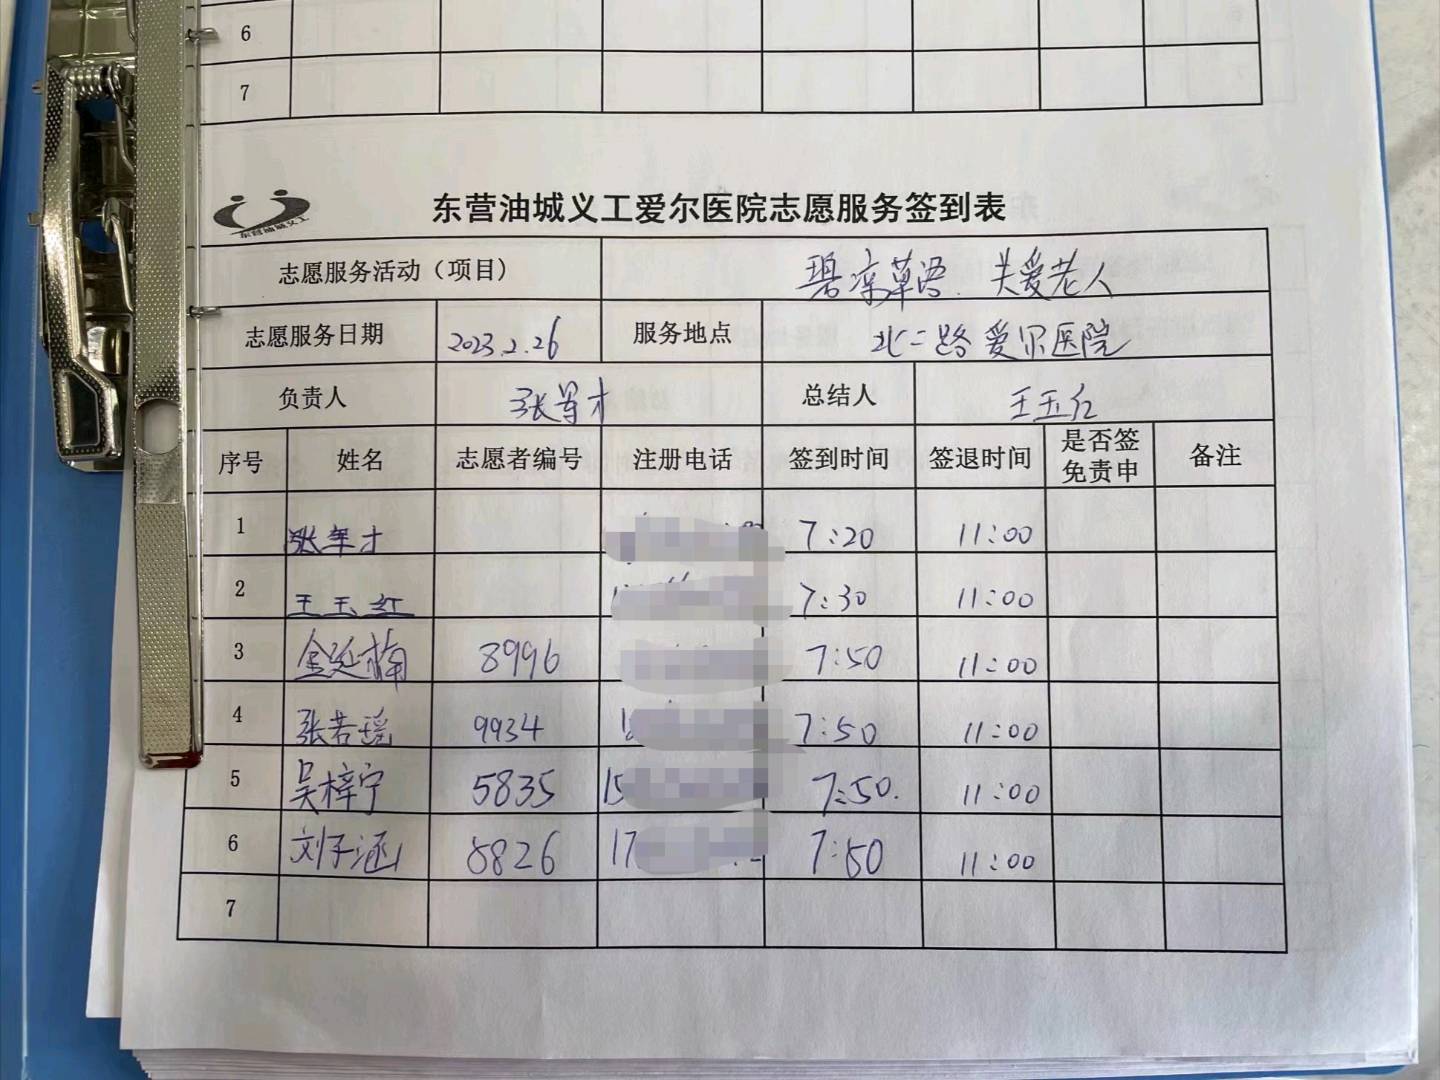 6
7
东营油城义工
东营油城义工爱尔医院志愿服务签到表
志愿服务活动（项目） 关爱老人
志愿服务日期 2023.2.26 服务地点 北二路爱尔医院
负责人 张军才 总结人 王玉红
序号 姓名 志愿者编号 注册电话 签到时间 签退时间 是否签免责申 备注
1 张军才 7:20 11:00
2 王玉红 7:30 11:00
3 金延楠 8996 7:50 11:00
4 张若瑶 9934 7:50 11:00
5 吴梓宁 5835 15 7:50. 11:00
6 刘子涵 8826 17 7:50 11:00
7